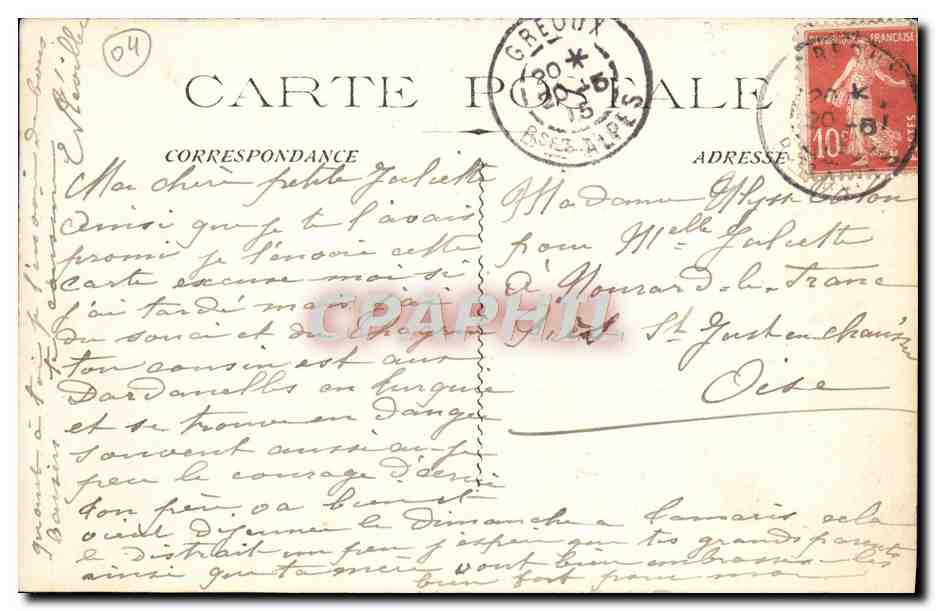 04
CARTE POSTALE
CORRESPONDANCE
ADRESSE
GREOUX
20 *
20 -5
15
BSES ALPES
FRANÇAISE
10c
POSTES
20 *
20 -5
Ma chère petite Juliette
Ainsi que je te l'avais
promi je t'envoie cette
carte excuse moi si
j'ai tardé mais j'ai
du souci et du chagrin
ton cousin est aux
Dardanelles en turquie
et se trouve en danger
souvent aussi ai-je
peu le courage d'écrire
ton père va bien et
vient déjeuner le dimanche a Tamaris cela
le distrait un peu j'espère que tes grands parents
ainsi que ta mère vont bien embrasse-les
bien fort pour moi
quant à toi je t'envoie de bons
Baisers ta cousine
Madame Ulysse
pour Melle Juliette
à Nourard-le-Franc
St Just en chaussée
Oise
CPAPHIL